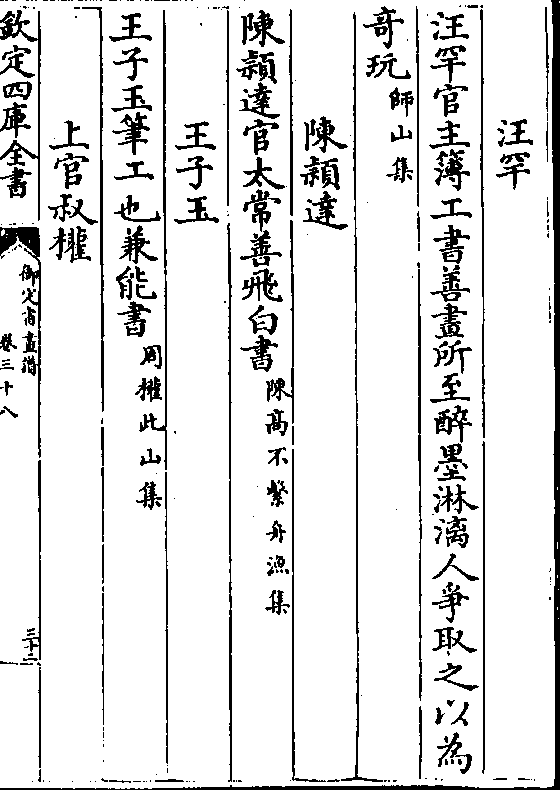 汪罕
汪罕官主簿工書善畫所至醉墨淋漓人爭取之以為
奇玩師山集
陳顥達
陳顥達官太常善飛白書陳高不繫舟漁集
王子玉
王子玉筆工也兼能書周權此山集
上官叔權
欽定四庫全書
御定書畫譜
卷三十八
三十二